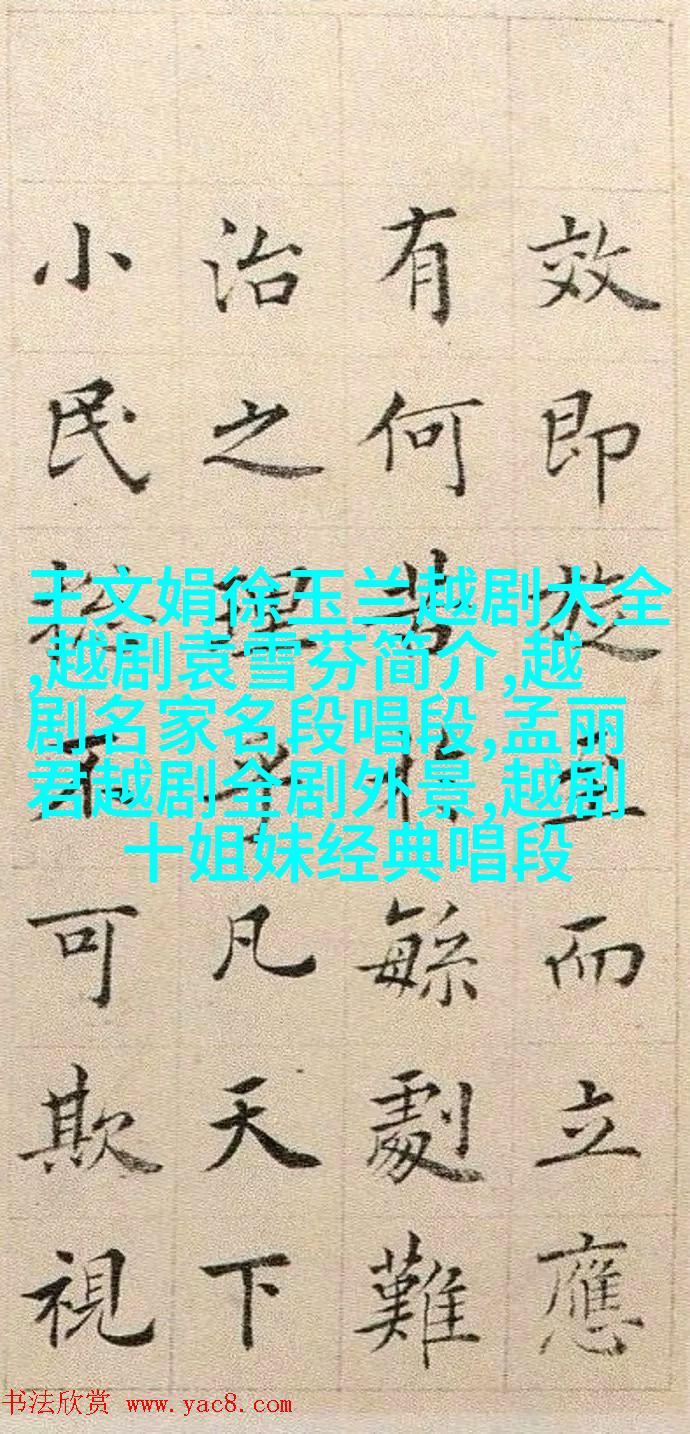 效即旋而立應
有何緐劇難
治之理凡天下
小民不可欺視
王文娟徐玉兰越剧大全
,越剧袁雪芬简介,越
剧名家名段唱段,孟丽
君越剧全剧外景,越剧
十姐妹经典唱段
书法欣赏 www.yac8.com